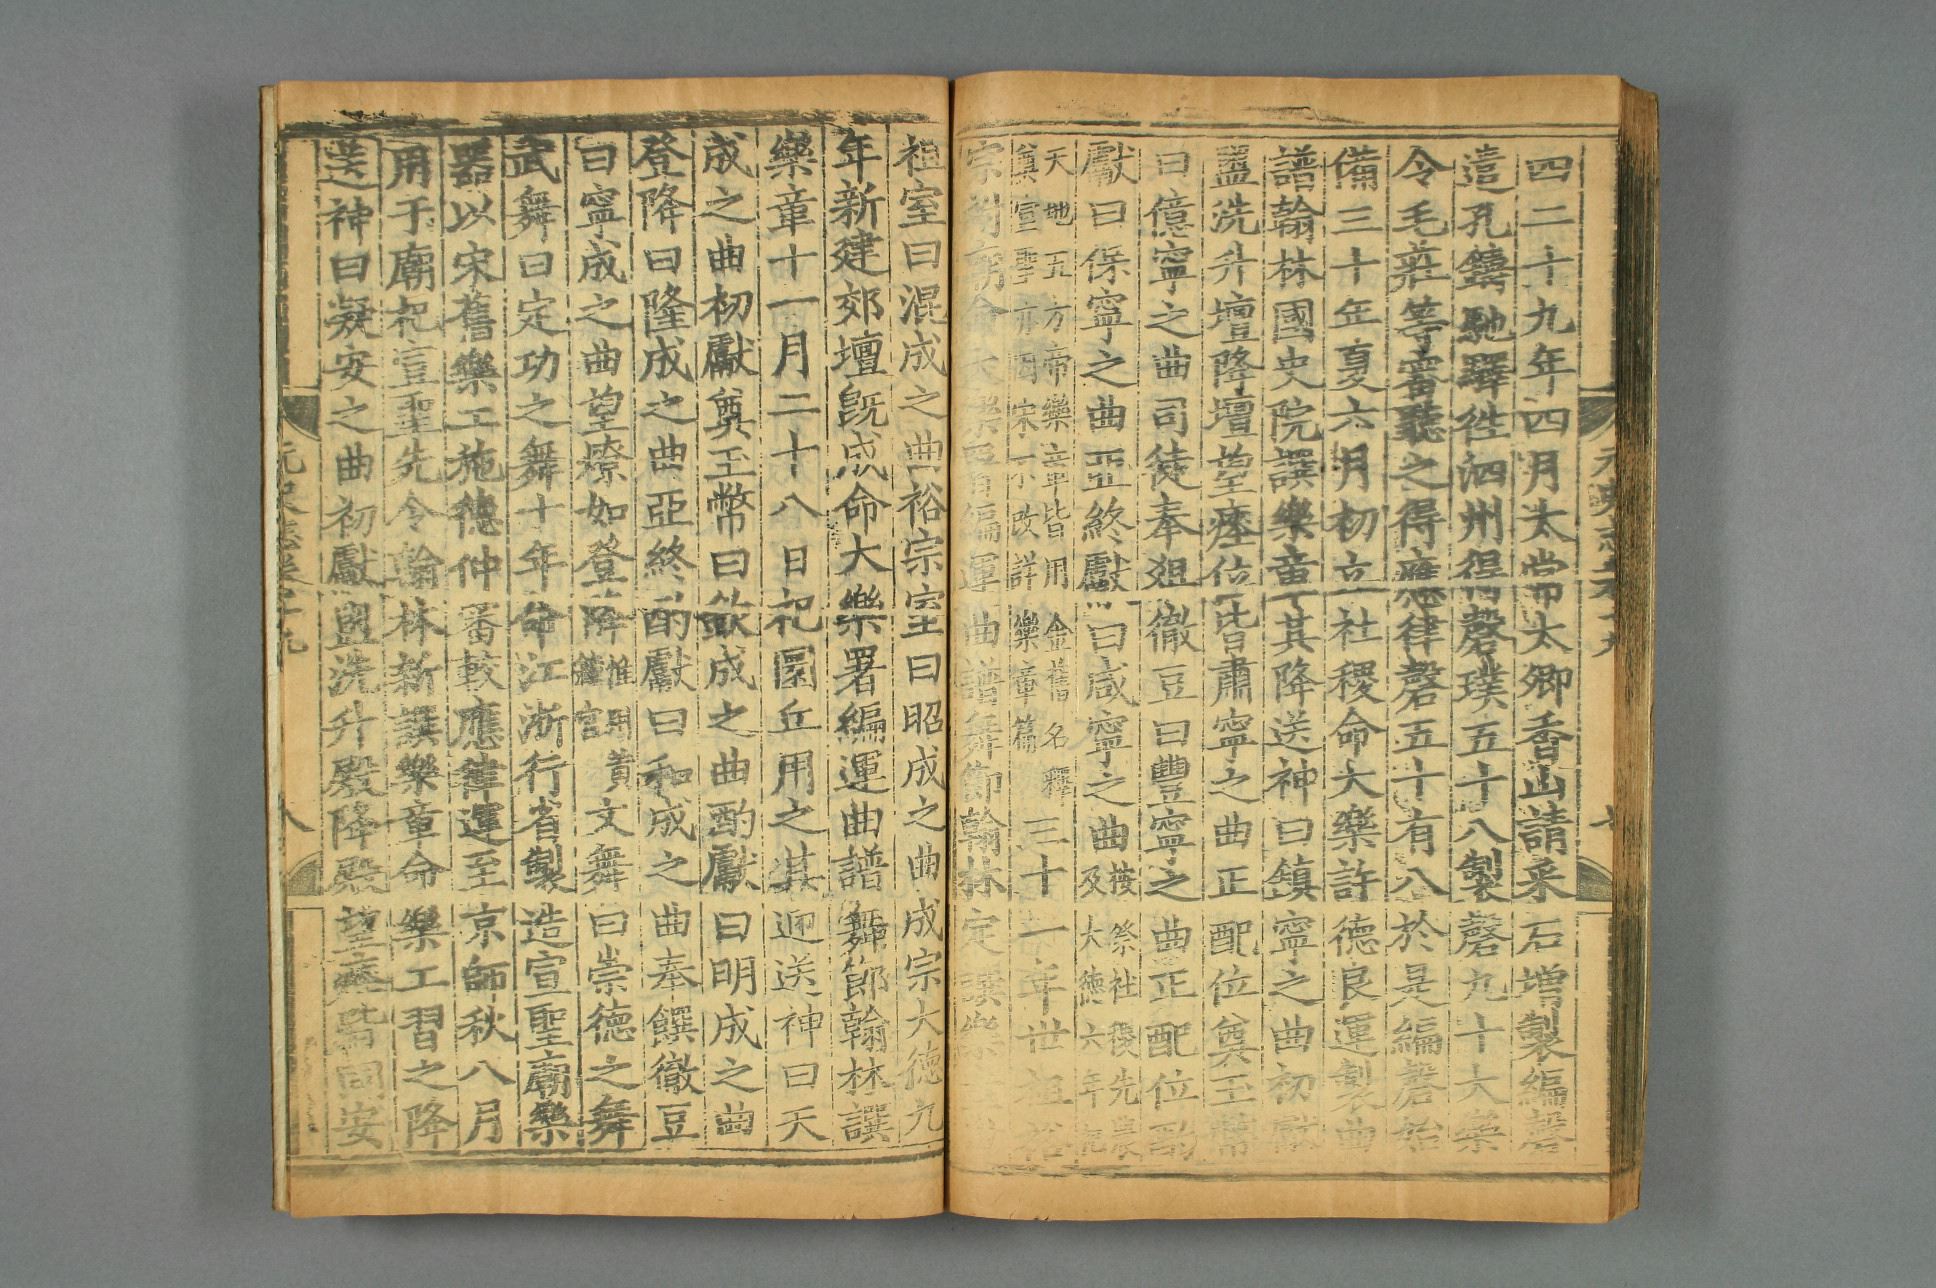 元史志卷十九
七
四二十九年四月太常太卿香山請采石增製編磬
遣孔鑄馳驛徃泗州得磬璞五十八製磬九十大樂
令毛莊等審聽之得應律磬五十有八於是編磬始
備三十年夏六月初立社稷命大樂許德良運製曲
譜翰林國史院譔樂章其降送神曰鎮寧之曲初獻
盥洗升壇降壇望瘞位皆肅寧之曲正配位奠玉幣
曰億寧之曲司徒奉俎徹豆曰豐寧之曲正配位酌
獻曰保寧之曲亞終獻曰咸寧之曲按祭社稷先農及大德六年祀
天地五方帝樂章皆用金舊名釋奠宣聖亦因宋不改詳樂章篇三十一年世祖裕
宗祔廟命大樂署編運曲譜舞節翰林定譔樂
祖室曰混成之曲裕宗室曰昭成之曲成宗大德九
年新建郊壇旣成命大樂署編運曲譜舞節翰林譔
樂章十一月二十八日祀圜丘用之其迎送神曰天
成之曲初獻奠玉幣曰欽成之曲酌獻曰明成之曲
登降曰隆成之曲亞終酌獻曰和成之曲奉饌徹豆
曰寧成之曲望燎如登降惟用黃鐘宮文舞曰崇德之舞
武舞曰定功之舞十年命江浙行省製造宣聖廟樂
器以宋舊樂工施德仲審較應律運至京師秋八月
用于廟祀宣聖先令翰林新譔樂章命樂工習之降
送神曰凝安之曲初獻盥洗升殿降殿望瘞皆同安
元史志卷十九
八